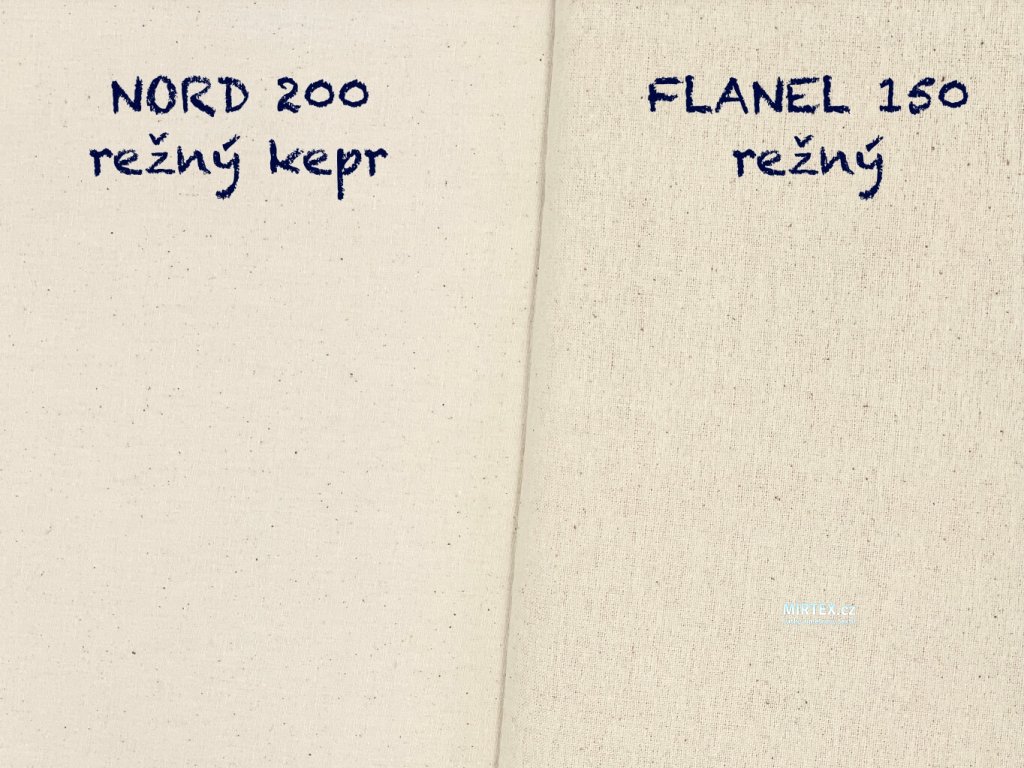 NORD 200
režný kepr
FLANEL 150
režný
MIRTEX.cz